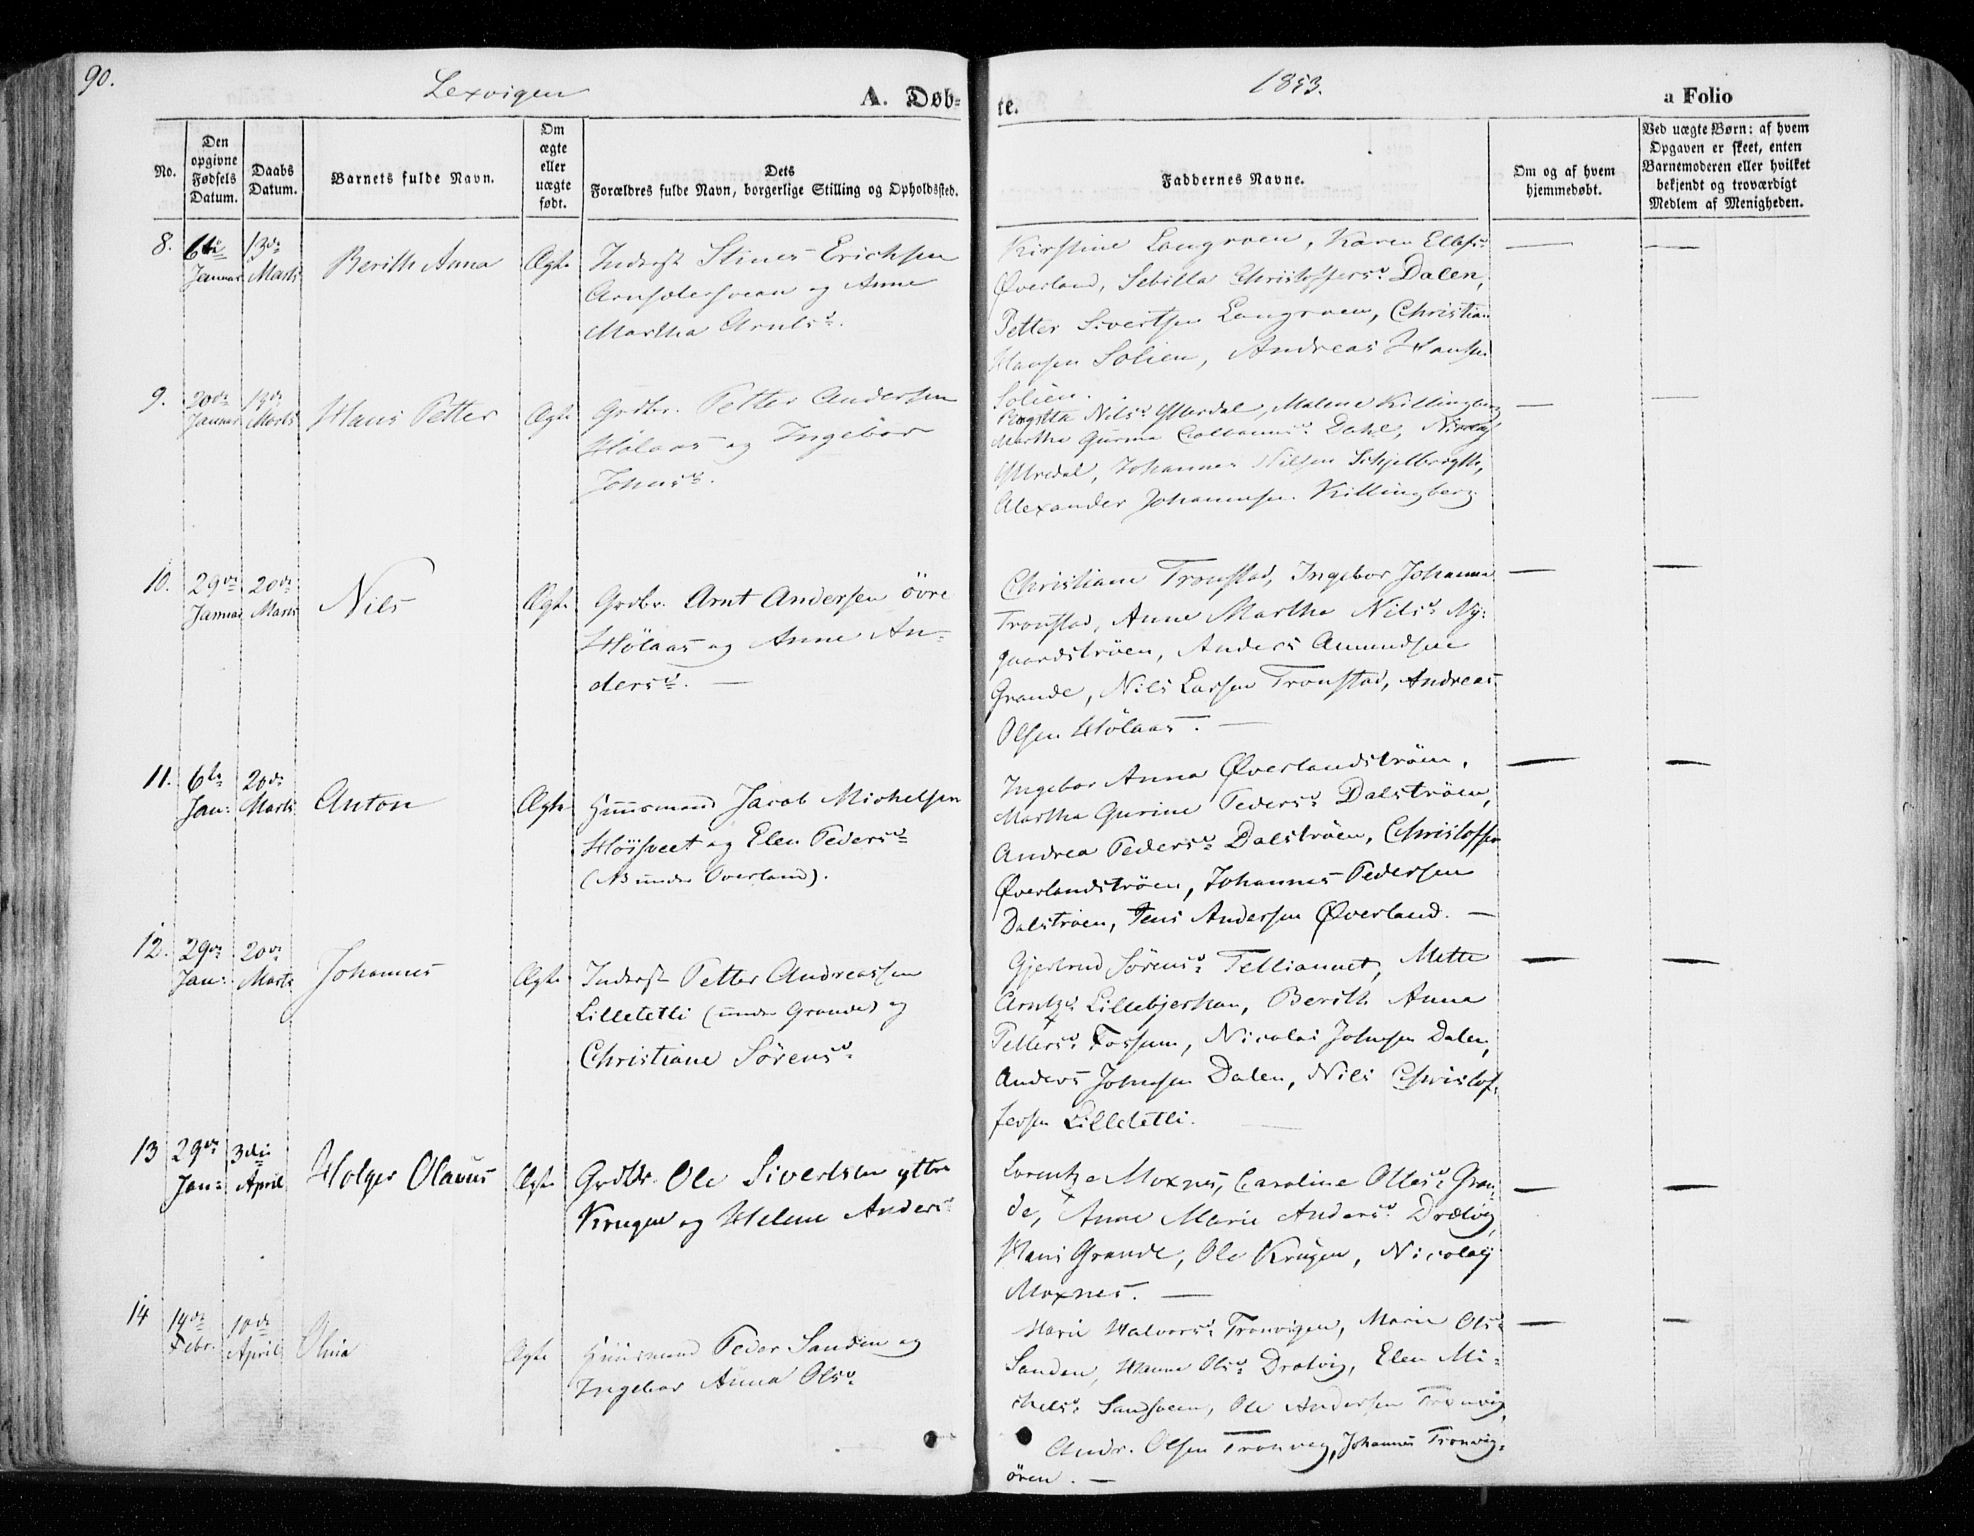 90.
Lexvigen
A. Døb-
te.
1853.
a Folio
No.
Den opgivne Fødsels Datum.
Daabs Datum.
Barnets fulde Navn.
Om ægte eller uægte født.
Dets Forældres fulde Navn, borgerlige Stilling og Opholdssted.
Faddernes Navne.
Om og af hvem hjemmedøbt.
Ved uægte Børn: af hvem Opgaven er skeet, enten Barnemoderen eller hvilket bekjendt og troværdigt Medlem af Menigheden.
8.
6te Januar
13de Marts
Berith Anna
Ægte
Inderst Stines Erichsen
og Anne
Martha Arntsd.
Kirstine Langroen, Karen Ellefsd.
Øverland, Sebilla Christoffersd. Dalen,
Petter Sivertsen Langroen, Christian
Hansen Solien, Andreas Hansen
Solien.
9.
20de Januar
Marts
Hans Petter
Ægte
Grdbr. Petter Andersen
Hölaas og Ingebor
Johnsd.
Nilsd. Ytterdal, Malene Killingberg
Martha Gurine Dahl, Nicolaj
Ytredal, Johannes Nilsen
Alexander Johannesen Killingberg
10.
29de Januar
20de Marts
Nils
Ægte
Grdbr. Arnt Andersen övre
Hölaas og Anne An-
dersd. —
Christiane Tronstad, Ingebor Johanna
Tronstad, Anne Martha Nilsd. Ny-
gaardströen, Anders Amundsen
Grande, Nils Larsen Tronstad, Andreas
Olsen Hölaas. —
11.
6te Jan:
20de Marts
Anton
Ægte
Huusmand Jacob Michelsen
Höisveet og Elen Pedersd.
(NB under Överland).
Ingebor Anna Øverlandströen,
Martha Gurine Pedersd. Dalströen,
Andrea Pedersd. Dalströen, Christoffer
Øverlandströen, Johannes Pedersen
Dalströen, Jens Andersen Øverland. —
12.
29de Jan:
20de Marts
Johannes
Ægte
Inderst Petter Andreassen
Lilletetli (under Grande) og
Christiane Sörensd.
Gjertrud Sørensd. Mette
Arntzd. Lillebjerkan, Berith Anna
Pettersd. Fossum, Nicolai Johnsen Dalen,
Anders Johnsen Dalen, Nils Christof-
fersen Lilletetli. —
13
29de Jan:
3die April
Holger Olavus
Ægte
Grdbr. Ole Sivertsen yttre
Krugen og Helene Andersd.
Lorentze Moxnes, Caroline Ollesd. Gran-
de, Anne Marie Andersd. Drætvig,
Hans Grande, Ole Krugen, Nicolaij
Moxnes. —
14
14de Febr.
10de April
Olina
Ægte
Huusmand Peder Sanden og
Ingebor Anna Olsd.
Marie Halvorsd. Tronvigen, Marie Olsd.
Sanden, Hanna Olsd. Dratvig, Elen Mi-
chelsd. Sandsveen, Ole Andersen Tronvig,
Andr. Olsen Tronvig, Johannes Tronvig-
ören. —